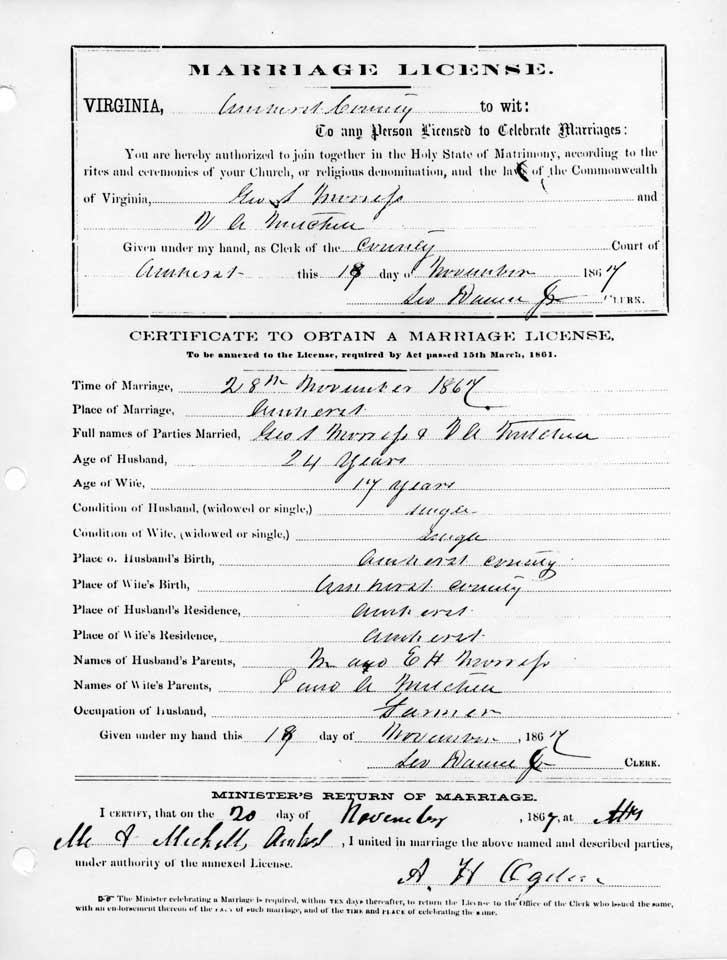 MARRIAGE LICENSE.
VIRGINIA, Amherst County to wit:
To any Person Licensed to Celebrate Marriages:
You are hereby authorized to join together in the Holy State of Matrimony, according to the
rites and ceremonies of your Church, or religious denomination, and the law of the Commonwealth
of Virginia, Geo S Morriss and
V A Mitchell
Given under my hand, as Clerk of the County Court of
Amherst this 18 day of November 1867
Jr CLERK.
CERTIFICATE TO OBTAIN A MARRIAGE LICENSE,
To be annexed to the License, required by Act passed 15th March, 1861.
Time of Marriage, 28th November 1867.
Place of Marriage, Amherst
Full names of Parties Married, Geo S Morriss & V A Mitchell
Age of Husband, 24 years
Age of Wife, 17 years
Condition of Husband, (widowed or single,) single
Condition of Wife, (widowed or single,) single
Place of Husband's Birth, Amherst County
Place of Wife's Birth, Amherst County
Place of Husband's Residence, Amherst
Place of Wife's Residence, Amherst
Names of Husband's Parents, and E H Morriss
Names of Wife's Parents, P and A Mitchell
Occupation of Husband, Farmer
Given under my hand this 18 day of November, 1867
Jr CLERK.
MINISTER'S RETURN OF MARRIAGE.
I CERTIFY, that on the 20 day of November, 1867, at
Mitchell, Amhst, I united in marriage the above named and described parties,
under authority of the annexed License.
A. H Ogden
The Minister celebrating a Marriage is required, within TEN days thereafter, to return the License to the Office of the Clerk who issued the same,
with an endorsement thereon of the FACT of such marriage, and of the TIME and PLACE of celebrating the same.